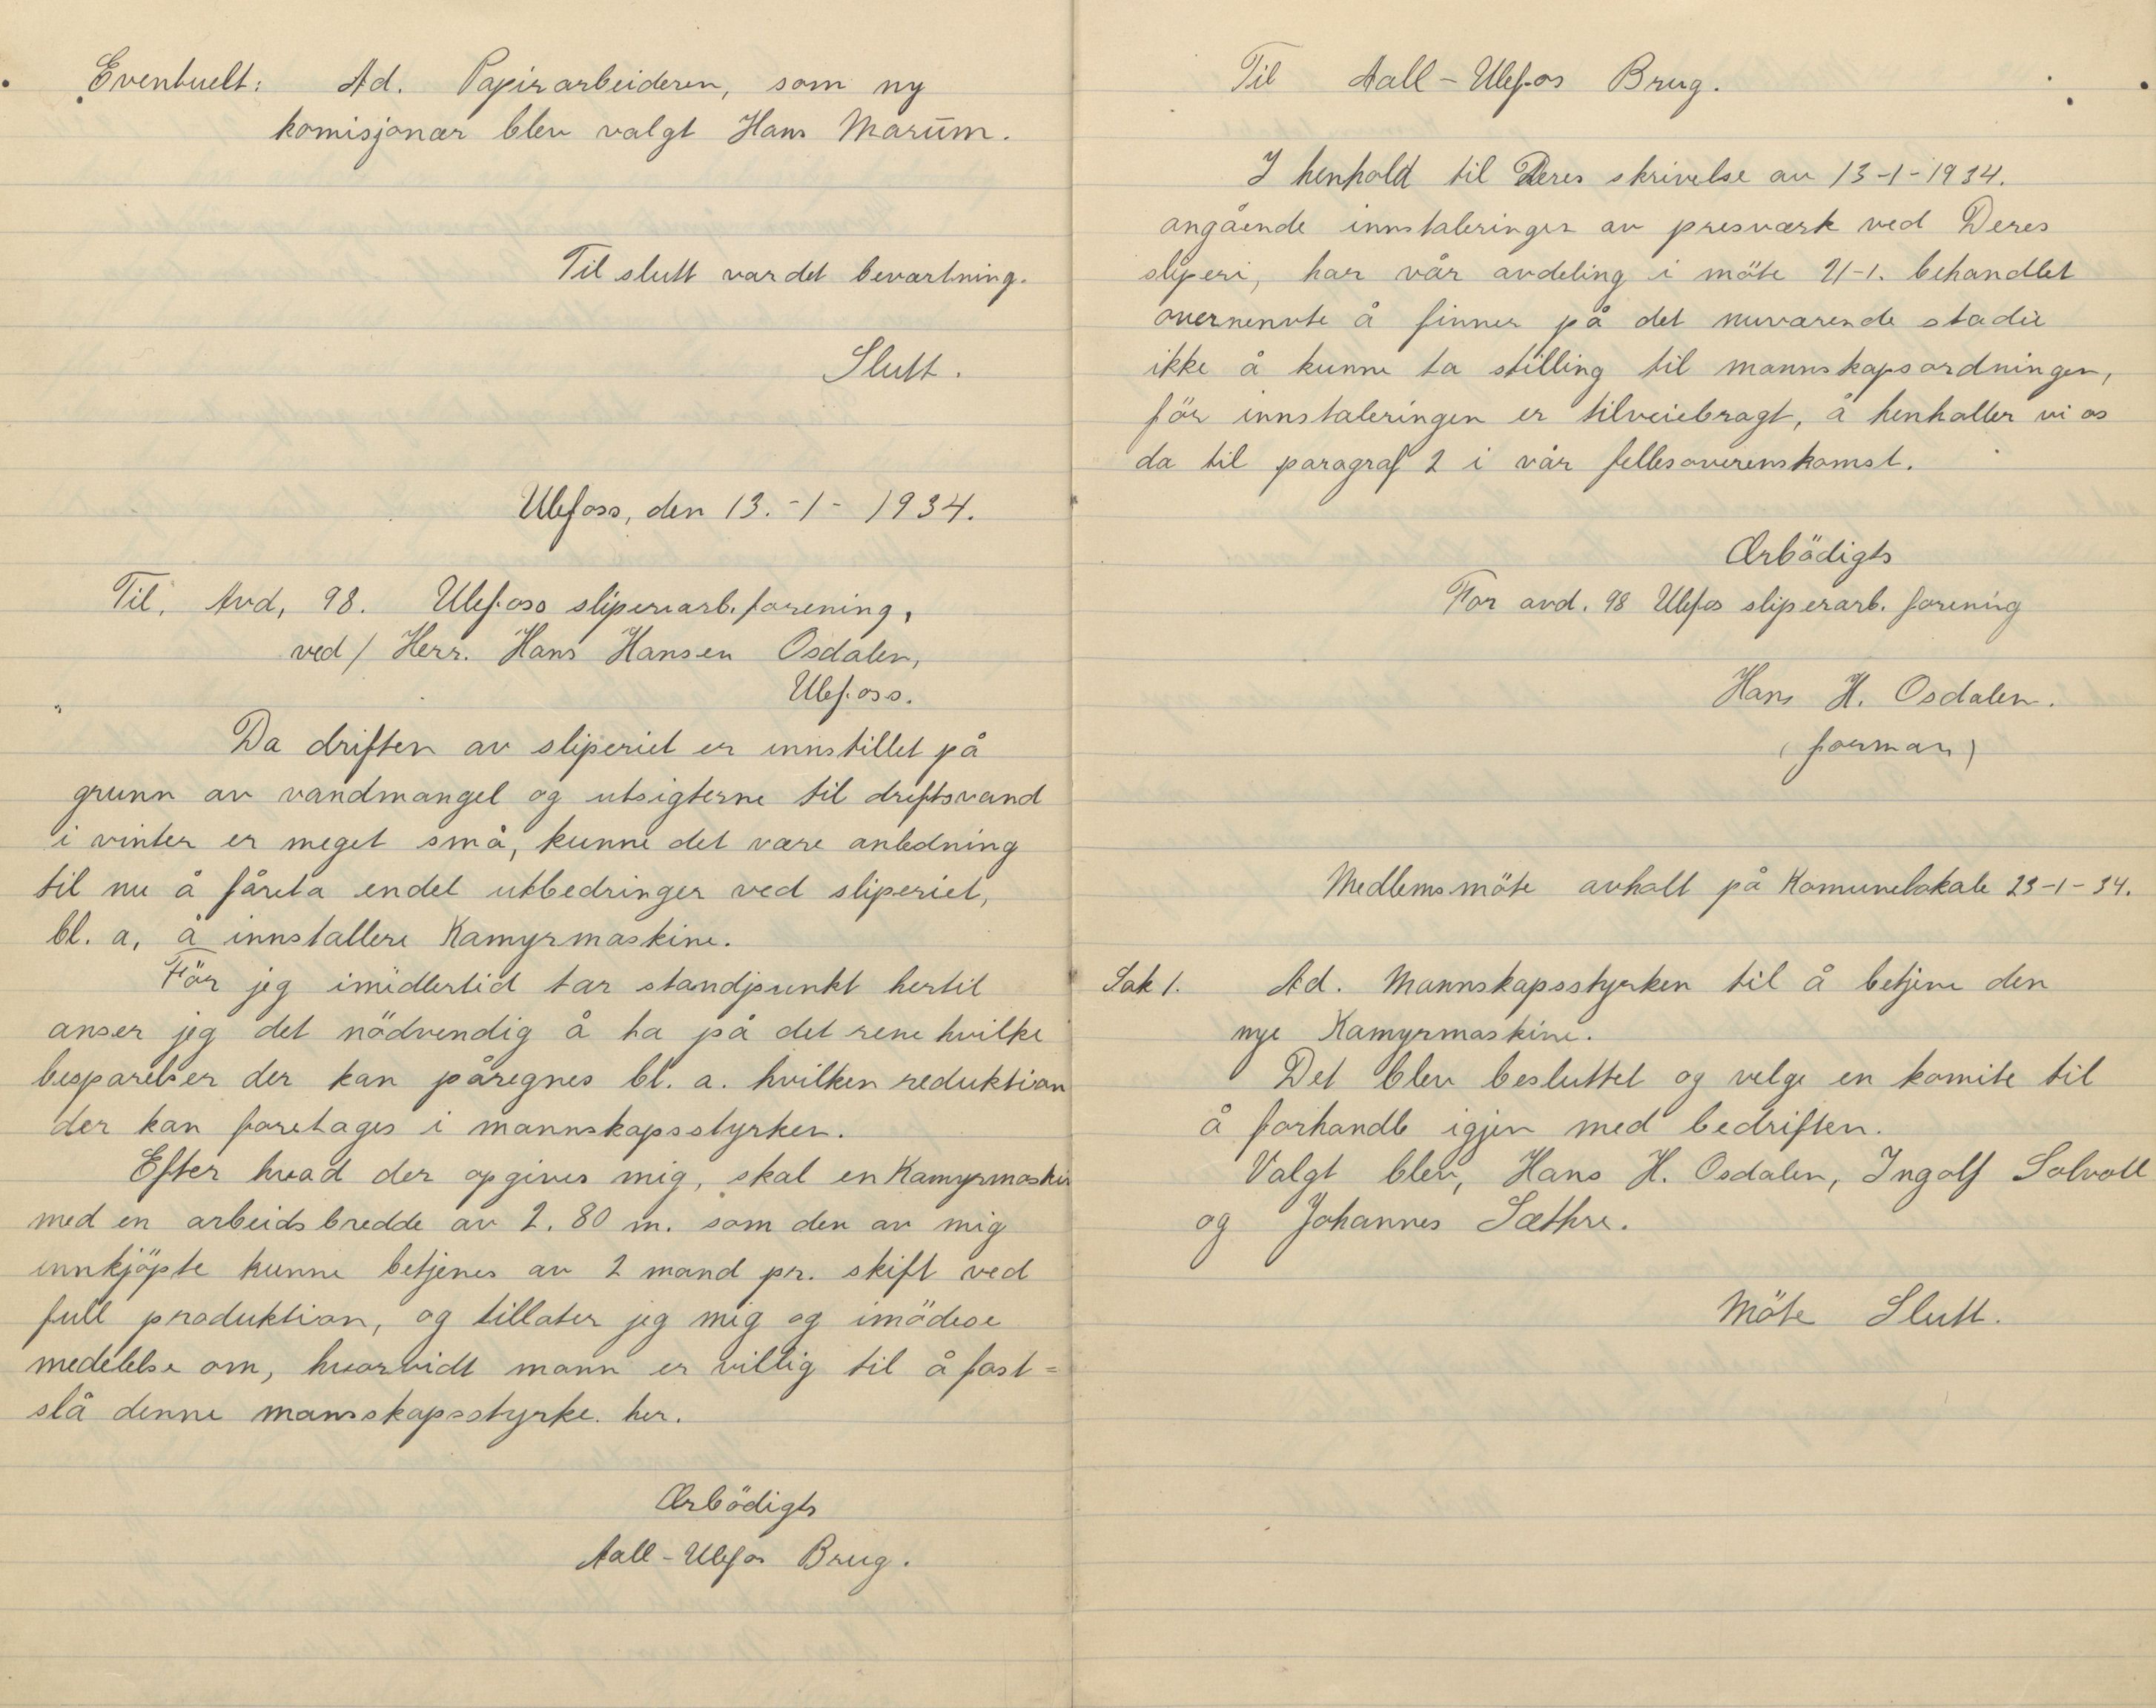 Eventuelt: Ad. Papirarbeideren, som ny
komisjonær blev valgt Hans Marum.
Til slutt var det beværtning.
Slutt.
Ulefoss, den 13.-1- 1934.
Til. Avd, 98. Ulefoss sliperiarb. forening,
ved / Herr. Hans Hansen Osdalen,
Ulefoss.
Da driften av sliperiet er innstillet på
grunn av vandmangel og utsigterne til driftsvand
i vinter er meget små, kunne det være anledning
til nu å fåreta endel utbedringer ved sliperiet,
bl. a, å innstallere Kamyrmaskine.
För jeg imidlertid tar standpunkt hertil
anser jeg det nödvendig å ha på det rene hvilke
besparelser der kan påregnes bl. a. hvilken reduktion
der kan foretages i mannskapsstyrken.
Efter hvad der opgives mig, skal en Kamyrmaskin
med en arbeidsbredde av 2.80 m. som den av mig
innkjöpte kunne betjenes av 2 mand pr. skift ved
full produktion, og tillater jeg mig og imödese
medelelse om, hvorvidt mann er villig til å fast=
slå denne manskapsstyrke. her.
Ærbödigts
Aall-Ulefos Brug.
Til Aall-Ulefos Brug.
I henhold til Deres skrivelse av 13-1-1934.
angående innstaleringer av presværk ved Deres
sliperi, har vår avdeling i möte 21-1. behandlet
overnenvte å finner på det nuværende stadie
ikke å kunne ta stilling til mannskapsordningen,
för innstaleringen er tilveiebragt, å henholler vi os
da til paragraf 2 i vår fellesoverenskomst.
Ærbödigts
For avd. 98 Ulefos sliperarb. forening
Hans H. Osdalen.
(forman)
Medlemsmöte avholt på Komunelokale 23-1-34.
Sak 1. Ad. Mannskapsstyrken til å betjene den
nye Kamyrmaskine.
Det blev besluttet og velge en komite til
å forhandle igjen med bedriften.
Valgt blev, Hans H. Osdalen, Ingolf Solvoll
og Johannes Sæthre.
Möte Slutt.